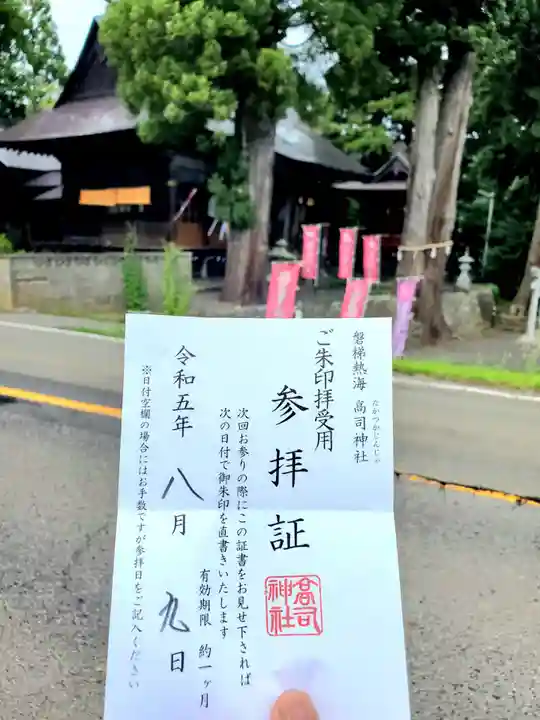 磐梯熱海 高司神社
たかつかじんじゃ
ご朱印拝受用
参拝証
次回お参りの際にこの証書をお見せ下されば
次の日付で御朱印を直書きいたします
有効期限 約一ヶ月
令和五年 八月 九日
※日付空欄の場合にはお手数ですが参拝日をご記入ください
高司神社